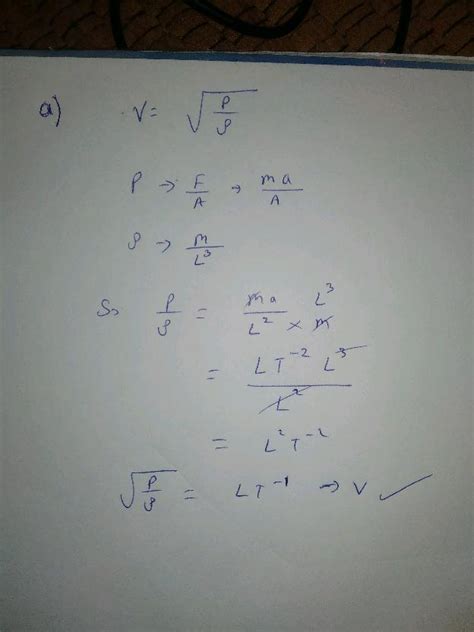 a) V = √(P/ρ)
P → F/A → ma/A
ρ → m/L³
So P/ρ = ma L³ / L² × m
= LT⁻² L³ / L²
= L² T⁻²
√(P/ρ) = LT⁻¹ → V ✓